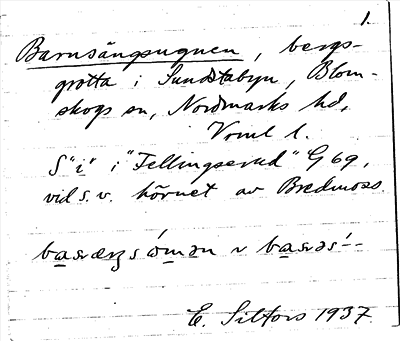 1.
Barnsängsugnen, bergs-
grotta i Sundstabyn, Blom-
skogs sn, Nordmarks hd,
Vrml l.
S "i" i "Fellingserud" G 69,
vid s.v. hörnet av Bredmoss.
E. Silfors 1937.